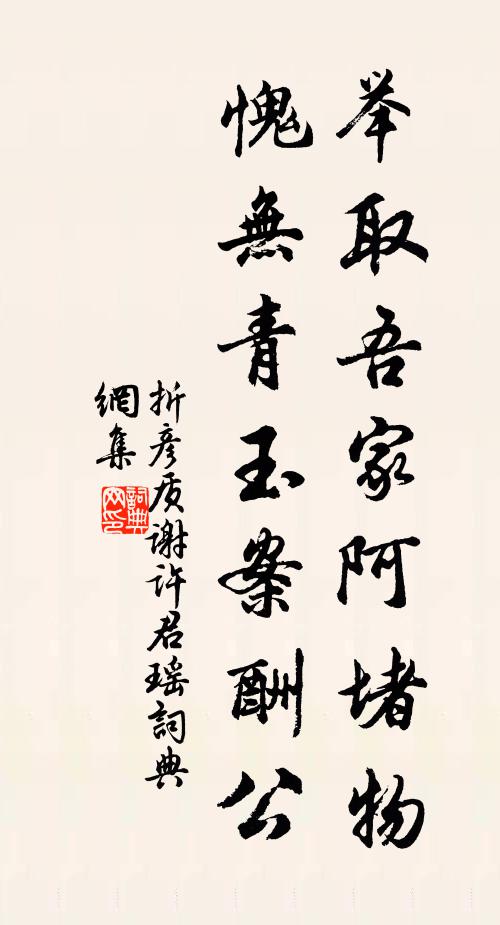 举取吾家阿堵物
愧無青玉案酬公
折彦质谢许君瑶詞典
網集
詞典网印